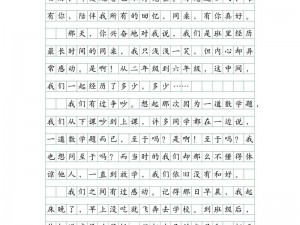 有你，陪伴我所有的回忆。同来，有你真好。
那天，你兴奋地对我说，我们是班里经历
最长时间的同来，我只浅浅一笑。但内心却异
常感动。是啊！从二年级到六年级，这中间，
我们一起经历了多少，多少……
我们有过争吵。想起那次因为一道数学题，
我们从下课吵到上课。许多同学都在一边说，
一道数学题而已，至于吗？是啊！至于吗？我
也想问至于吗？而当时的我们却那么不懂得体
谅他人，一直到放学。我们依旧没有和好。
我们之间有过感动。记得那日早晨，我起
床晚了，早上没吃就飞奔去学校。到班级后，